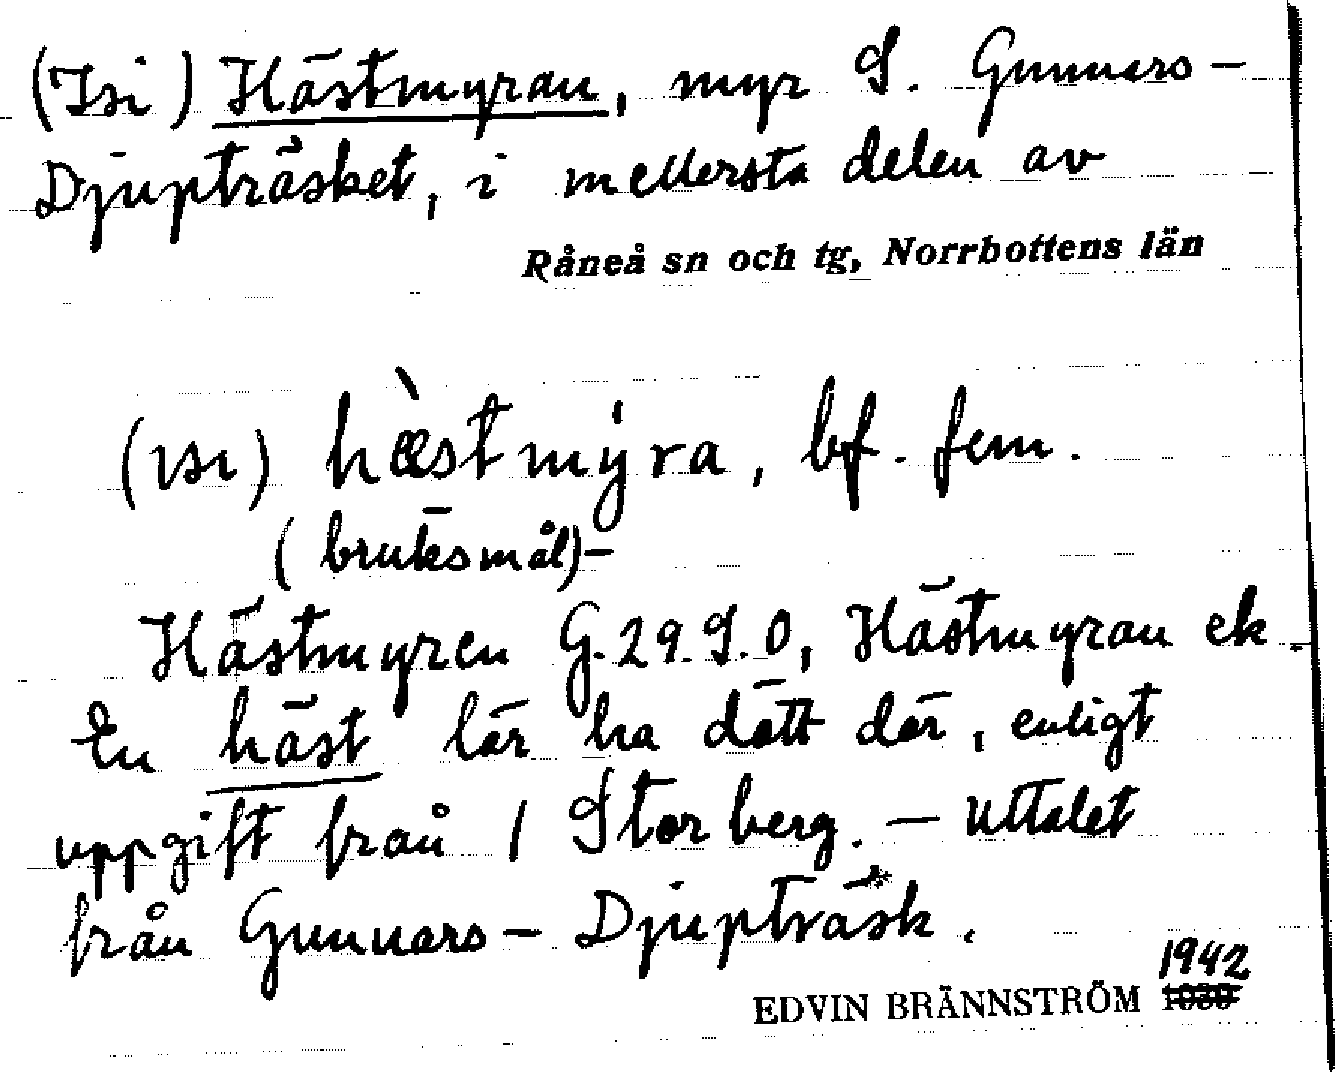 (Isi) Hästmyran, myr S. Gunnars-
Djupträsket, i mellersta delen av
Råneå sn och tg, Norrbottens län
(ısı) hæ̀stmýra, bf. fem.
(bruksmål)-
Hästmyren G. 29. S. O, Hästmyran ek.
En häst lär ha dött där, enligt
uppgift från / Storberg. — Uttalet
från Gunnars-Djupträsk.
1942
EDVIN BRÄNNSTRÖM 1939